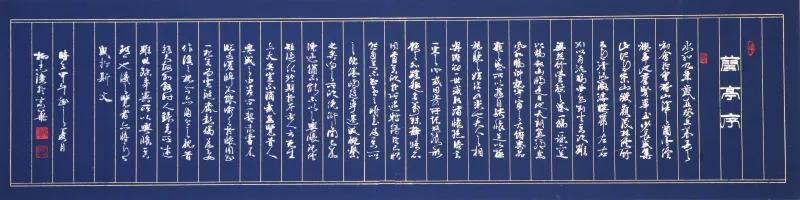 蘭亭序
永和九年歲在癸丑暮春之
初會于會稽山陰之蘭亭脩
禊事也羣賢畢至少長咸集
此地有崇山峻領茂林脩竹
又有清流激湍暎帶左右
引以為流觴曲水列坐其次雖
無絲竹管弦之盛一觴一詠亦足
以暢敘幽情是日也天朗氣清惠
風和暢仰觀宇宙之大俯察品
類之盛所以遊目騁懷足以極
視聽之娛信可樂也夫人之相
與俯仰一世或取諸懷抱悟言
一室之內或因寄所託放浪形
骸之外雖趣舍萬殊靜躁不
同當其欣於所遇暫得於己快
然自足不知老之將至及其所
之既惓情隨事遷感慨係
之矣向之所欣俛仰之間以為
陳迹猶不能不以之興懷況脩
短隨化終期於盡古人云死生
亦大矣豈不痛哉每覽昔人
興感之由若合一契未嘗不
臨文嗟悼不能喻之於懷固知
一死生為虛誕齊彭殤為妄
作後之視今亦由今之視昔
悲夫故列敘時人錄其所述
雖世殊事異所以興懷其
致一也後之覽者亦將有
感於斯文